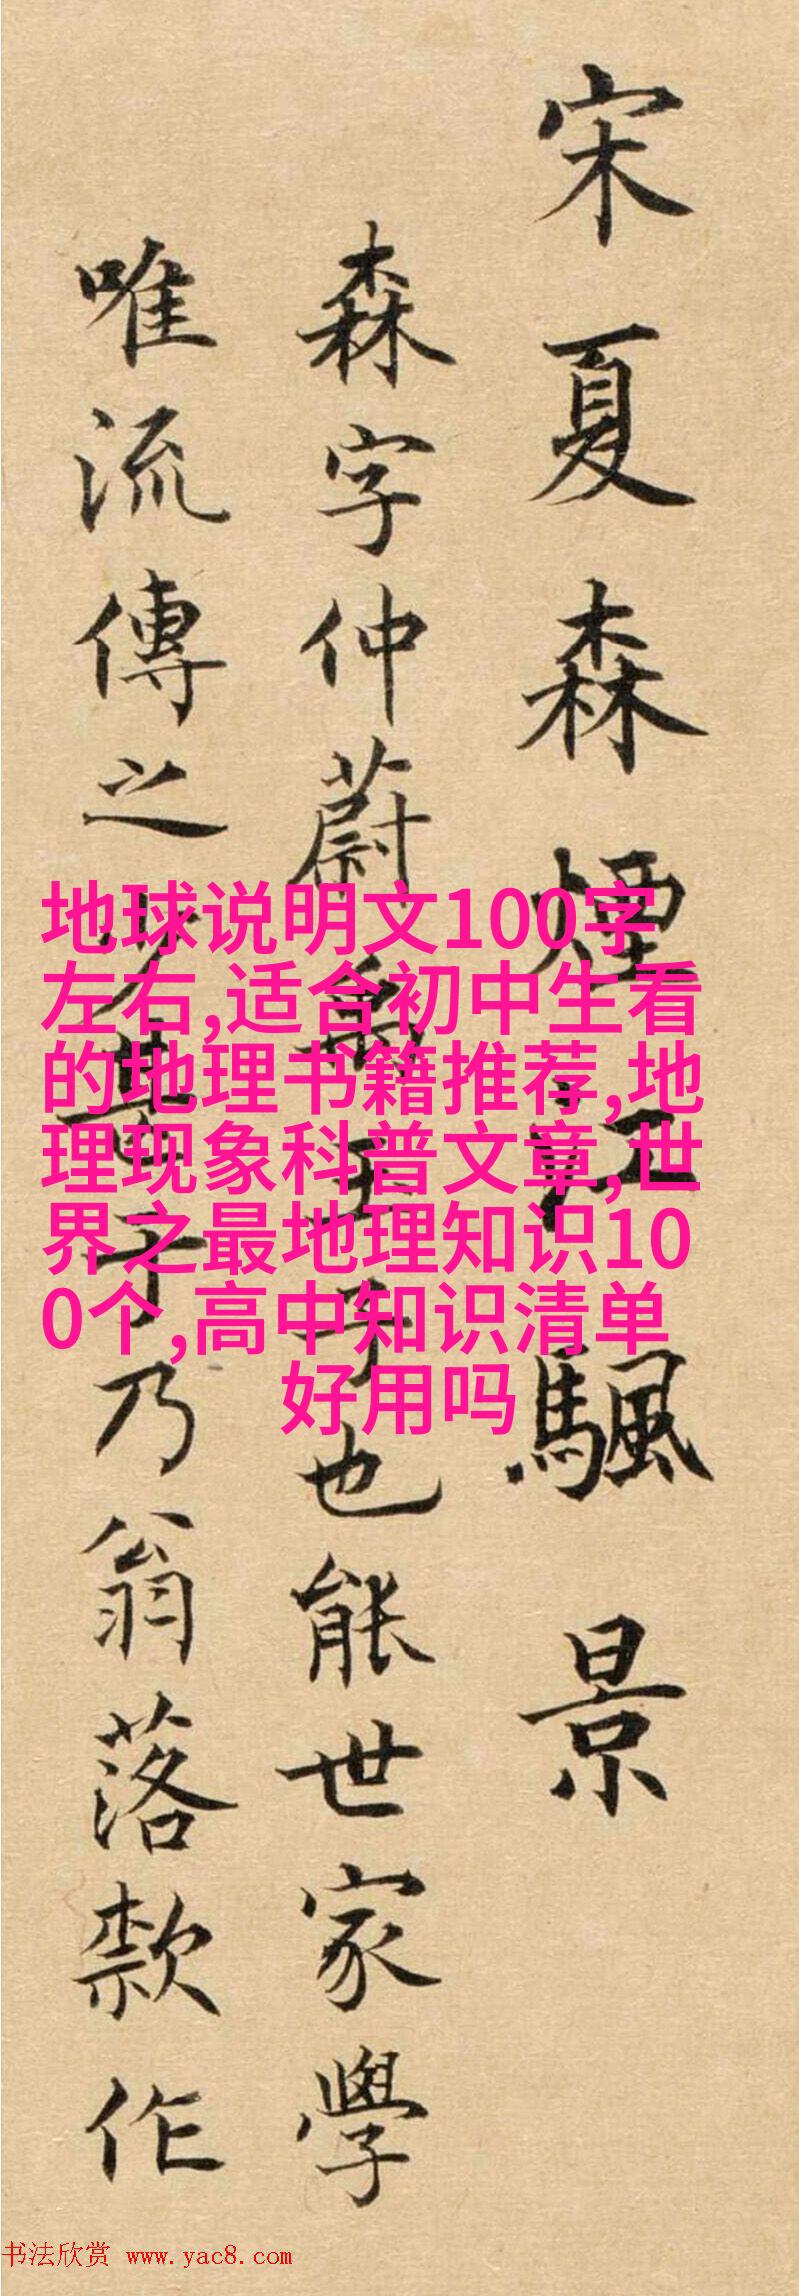 宋夏森煙江颿景
森字仲蔚禹玉子也能世家學
唯流傳之少甚于乃翁落款作
地球说明文100字
左右,适合初中生看
的地理书籍推荐,地
理现象科普文章,世
界之最地理知识10
0个,高中知识清单
好用吗
书法欣赏 www.yac8.com